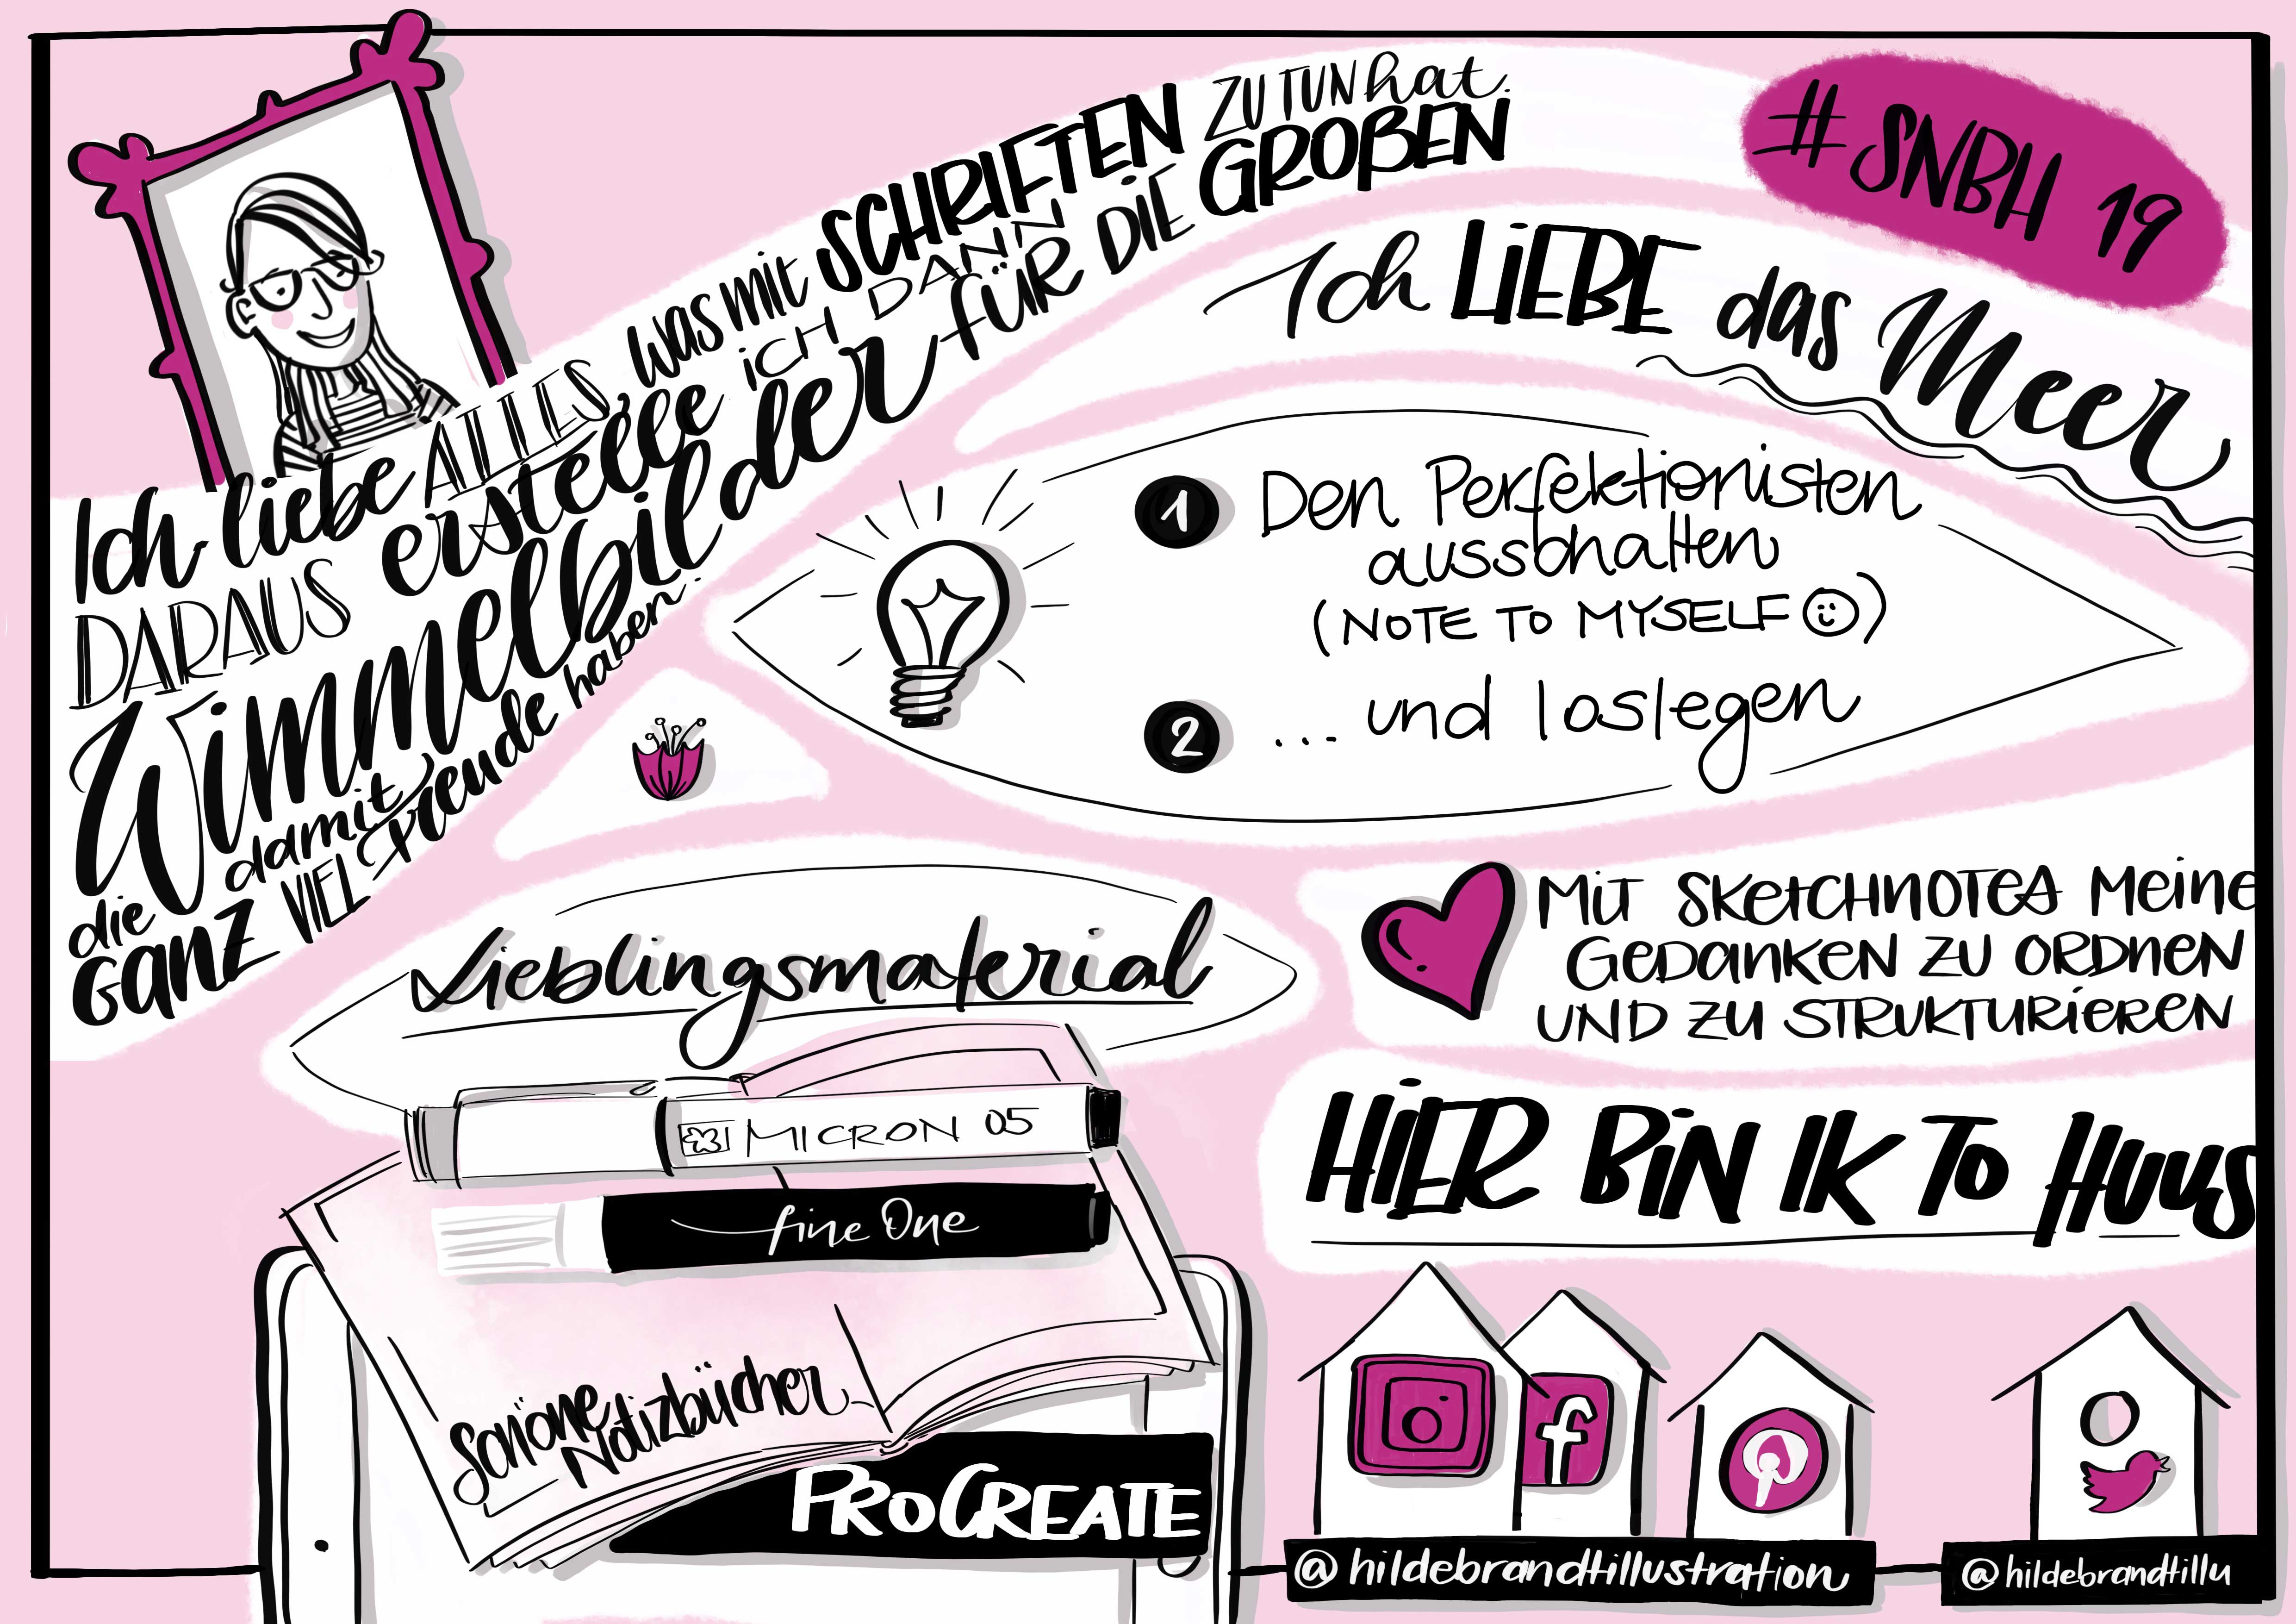 # SNBH 19
Ich liebe ALLES, was mit SCHRIFTEN ZU TUN hat.
DARAUS erstelle ICH DANN
Wimmelbilder für DIE GROßEN
die damit
GANZ VIEL Freude haben.
Ich LIEBE das Meer
1 Den Perfektionisten
ausschalten
(NOTE TO MYSELF)
2 ... und loslegen
Lieblingsmaterial
MICRON 05
fine One
Schöne
Notizbücher
PROCREATE
MIT SKETCHNOTES MEINE
GEDANKEN ZU ORDNEN
UND ZU STRUKTURIEREN
HIER BIN IK TO HUUS
f
@hildebrandtillustration
@hildebrandtillu